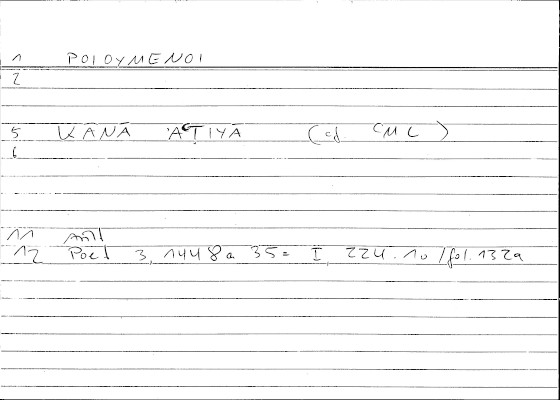 1 POIOYMENOI
2
5 KĀNĀ ʾĀTIYĀ (cf CML)
6
11 Arist
12 Poet 3, 1448 a 35 = I, 224.10 / fol. 132a